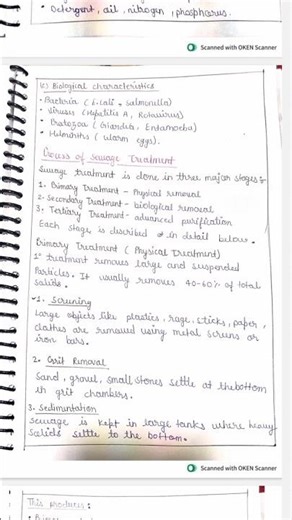 • Detergent, oil, nitrogen, phosphorus.
Scanned with OKEN Scanner
Biological characteristics
• Bacteria (E.coli, salmonella)
• Viruses (Hepatitis A, Rotavirus)
• Protozoa (Giardia, Entamoeba)
• Helminths (worm eggs).
Process of Sewage Treatment
Sewage treatment is done in three major stages:
1. Primary Treatment - Physical removal
2. Secondary Treatment - biological removal
3. Tertiary Treatment - advanced purification
Each stage is described in detail below.
Primary Treatment (Physical Treatment)
1° treatment removes large and suspended
Particles. It usually removes 40-60% of total
solids.
1. Screening
Large objects like plastics, rags, sticks, paper,
clothes are removed using metal screens or
iron bars.
2. Grit Removal
Sand, gravel, small stones settle at the bottom
in grit chambers.
3. Sedimentation
Sewage is kept in large tanks where heavy
Solids settle to the bottom.
Scanned with OKEN Scanner
This produces: